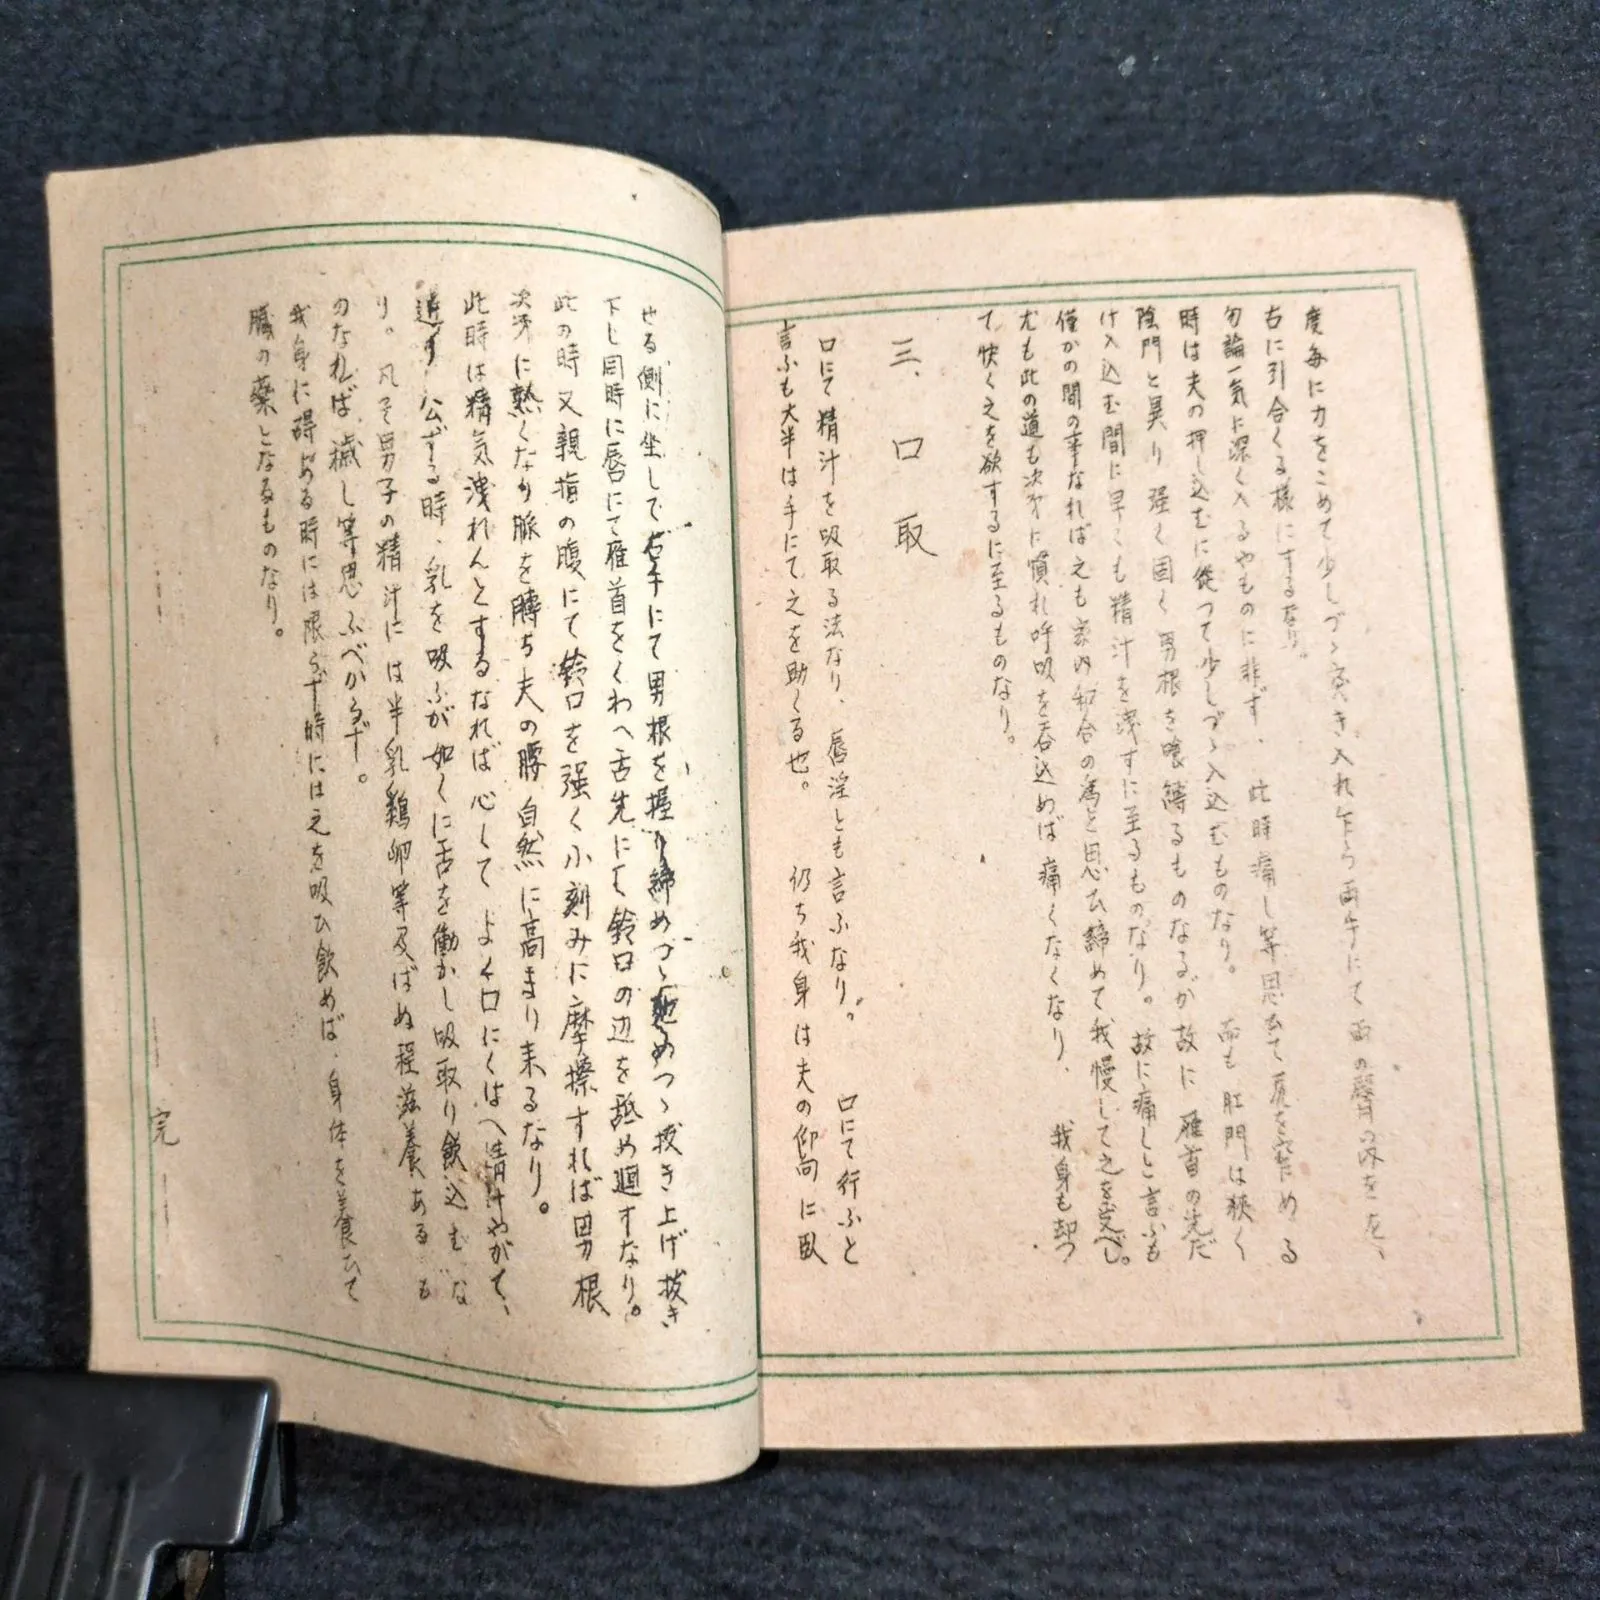 度毎に力をこめて少しづゝ突き入れ乍ら両手にて両の臀の肉を、
右に引合くる様にするなり。
勿論一気に深く入るやものに非ず、此時痛し等思ひて尻を窄める
時は夫の押し込むに従つて少しづゝ入込むものなり。而も肛門は狭く
陰門と異り強く固く男根を喰縛るものなるが故に雁首の先だ
け入込む間に早くも精汁を洩すに至るものなり。故に痛しと言ふも
僅かの間の事なれば之も家内和合の為と思ひ諦めて我慢して之を受べし。
尤も此の道も次第に慣れ呼吸を呑込めば痛くなくなり、我身も却つ
て快く之を欲するに至るものなり。
三、口取
口にて精汁を吸取る法なり、唇淫とも言ふなり。口にて行ふと
言ふも大半は手にて之を助くる也。仍ち我身は夫の仰向に臥
せる側に坐して右手にて男根を握り締めづゝ めつゝ抜き上げ抜き
下し同時に唇にて雁首をくわへ舌先にて鈴口の辺を舐め廻すなり。
此の時又親指の腹にて鈴口を強く小刻みに摩擦すれば男根
次第に熱くなり脈を搏ち夫の腰自然に高まり来るなり。
此時は精気洩れんとするなれば心してよく口にくはへ精汁やがて、
する時、乳を吸ふが如くに舌を働かし吸取り飲込むな
り。凡そ男子の精汁には半乳鶏卵等及ばぬ程滋養あるも
のなれば、穢し等思ふべからず。
我身に碍ある時には限らず時には之を吸ひ飲めば、身体を養ひて
臓の薬となるものなり。
完